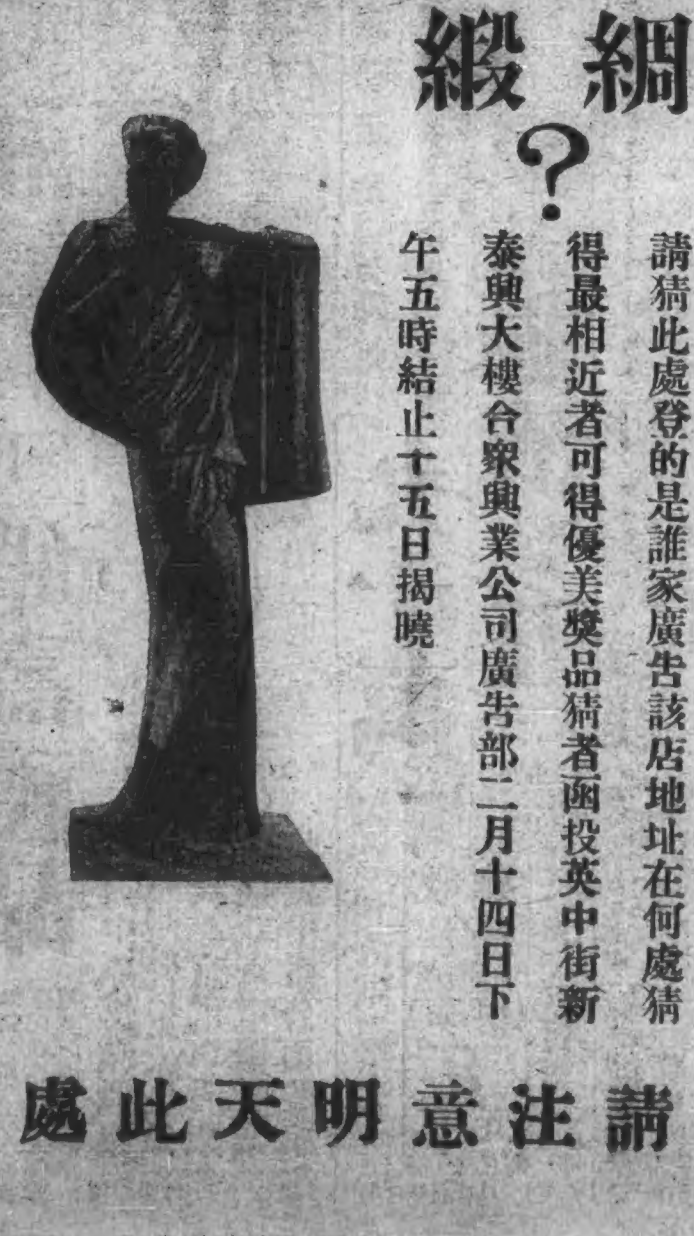 綢緞
?
請猜此處登的是誰家廣告該店地址在何處猜
得最相近者可得優美獎品猜者函投英中街新
泰興大樓合衆興業公司廣告部二月十四日下
午五時結止十五日揭曉
請注意明天此處